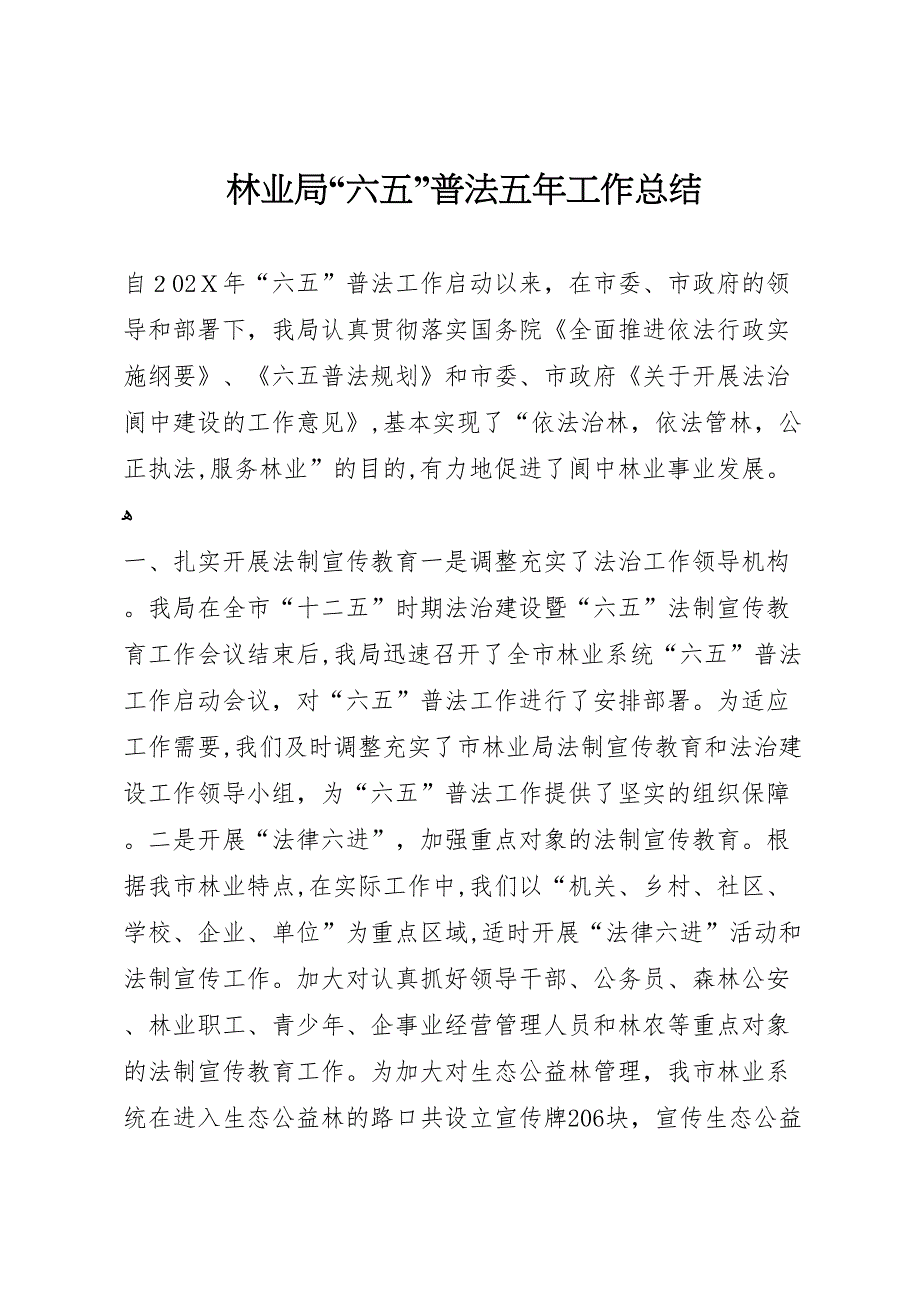 林业局“六五”普法五年工作总结
自２02Ｘ年“六五”普法工作启动以来，在市委、市政府的领
导和部署下，我局认真贯彻落实国务院《全面推进依法行政实
施纲要》、《六五普法规划》和市委、市政府《关于开展法治
阆中建设的工作意见》,基本实现了“依法治林，依法管林，公
正执法,服务林业”的目的,有力地促进了阆中林业事业发展。
ﻫ
一、扎实开展法制宣传教育一是调整充实了法治工作领导机构
。我局在全市“十二五”时期法治建设暨“六五”法制宣传教
育工作会议结束后,我局迅速召开了全市林业系统“六五”普法
工作启动会议，对“六五”普法工作进行了安排部署。为适应
工作需要,我们及时调整充实了市林业局法制宣传教育和法治建
设工作领导小组，为“六五”普法工作提供了坚实的组织保障
。二是开展“法律六进”，加强重点对象的法制宣传教育。根
据我市林业特点,在实际工作中,我们以“机关、乡村、社区、
学校、企业、单位”为重点区域,适时开展“法律六进”活动和
法制宣传工作。加大对认真抓好领导干部、公务员、森林公安
、林业职工、青少年、企事业经营管理人员和林农等重点对象
的法制宣传教育工作。为加大对生态公益林管理，我市林业系
统在进入生态公益林的路口共设立宣传牌206块，宣传生态公益